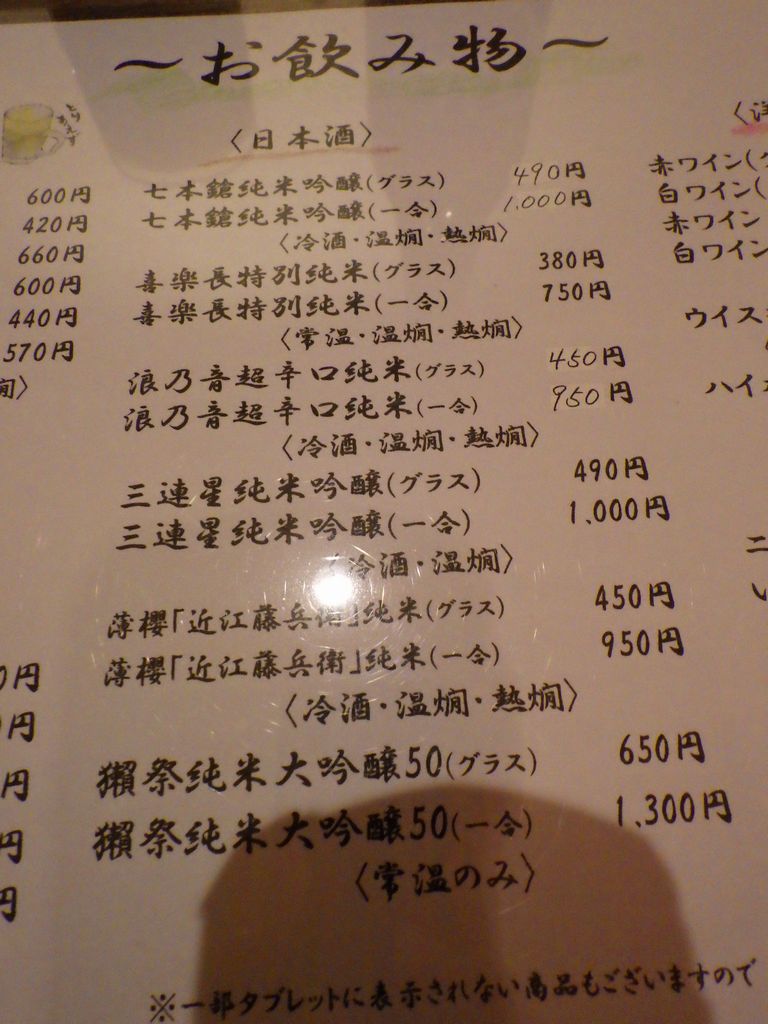 ～お飲み物～
〈日本酒〉
600円
420円
660円
600円
440円
570円
七本鎗純米吟醸(グラス) 490円
七本鎗純米吟醸(一合) 1,000円
〈冷酒・温燗・熱燗〉
喜楽長特別純米(グラス) 380円
喜楽長特別純米(一合) 750円
〈常温・温燗・熱燗〉
浪乃音超辛口純米(グラス) 450円
浪乃音超辛口純米(一合) 950円
〈冷酒・温燗・熱燗〉
三連星純米吟醸(グラス) 490円
三連星純米吟醸(一合) 1,000円
〈冷酒・温燗〉
薄櫻「近江藤兵衛」純米(グラス) 450円
薄櫻「近江藤兵衛」純米(一合) 950円
〈冷酒・温燗・熱燗〉
獺祭純米大吟醸50(グラス) 650円
獺祭純米大吟醸50(一合) 1,300円
〈常温のみ〉
※一部タブレットに表示されない商品もございますので
赤ワイン(
白ワイン(
赤ワイン
白ワイン
ウイス
ハイ